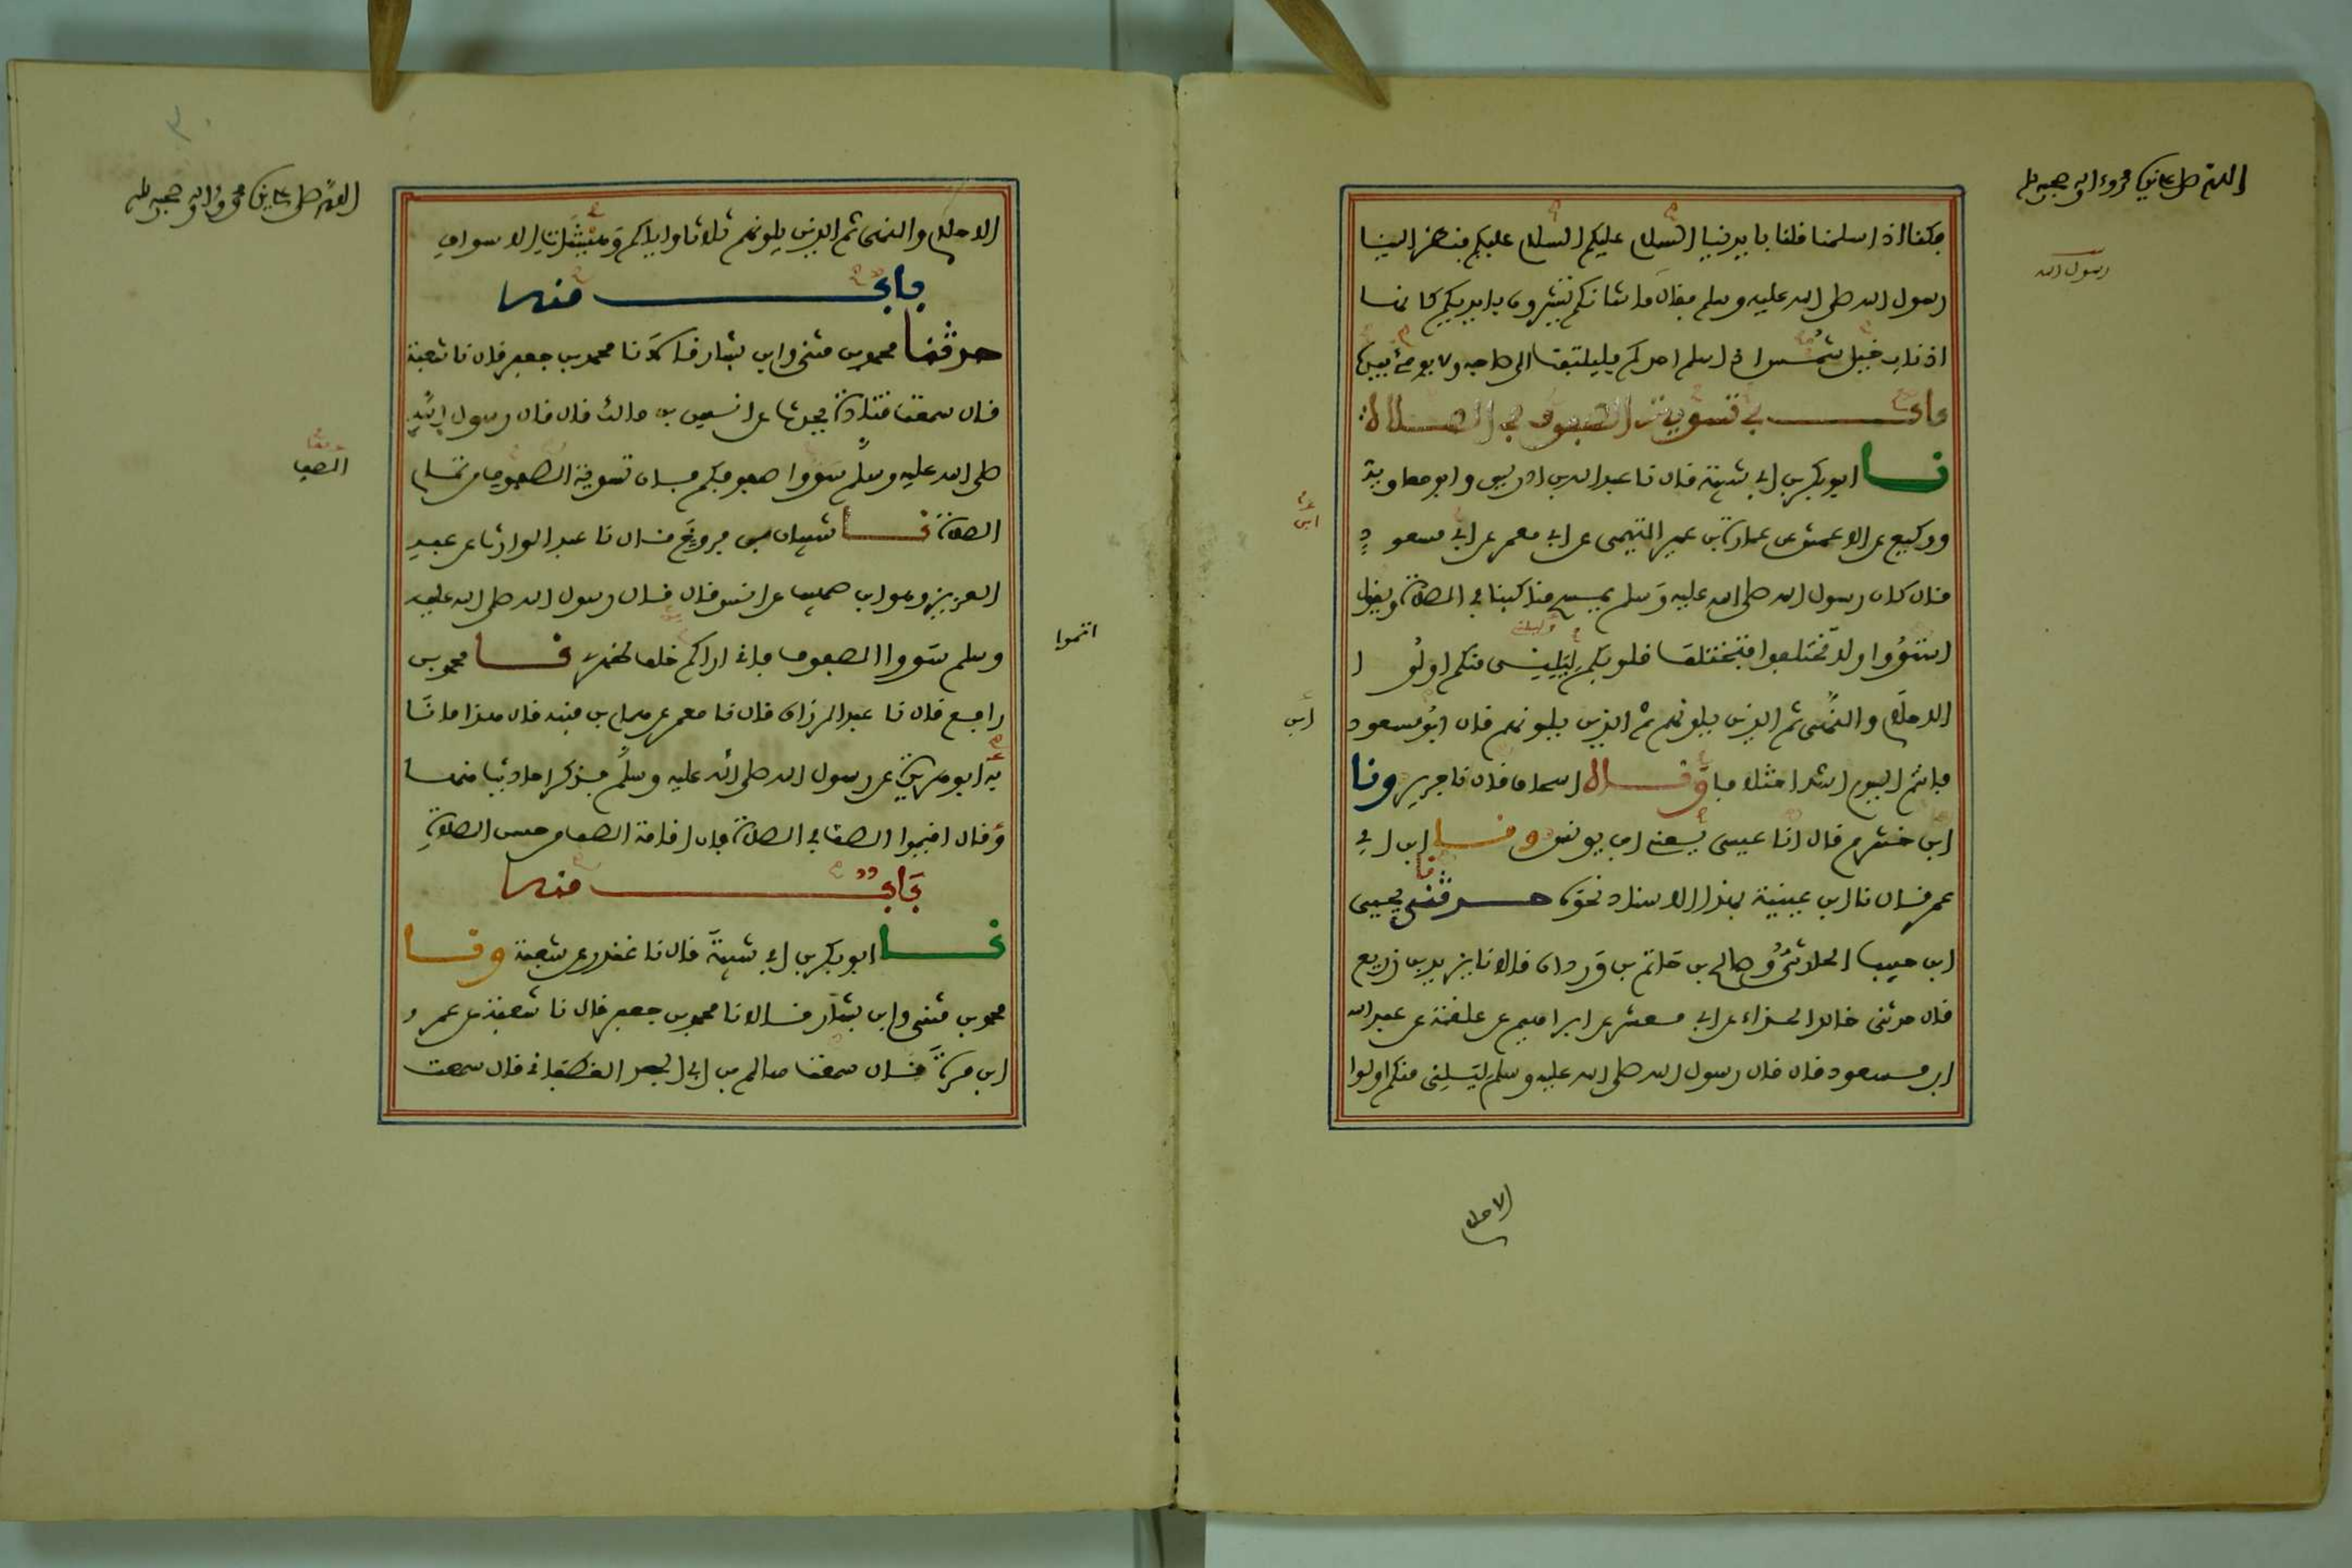 اللهم صل على سيدنا محمد وءاله وصحبه وسلم
فكنا اذا سلمنا قلنا بايدينا السلام عليكم السلام عليكم فنظر الينا
رسول الله
رسول الله صلى الله عليه وسلم فقال ما شانكم تشيرون بايديكم كانها
اذناب خيل شمس اذا سلم احدكم فليلتفت الى صاحبه ولا يومئ بيده
باب في تسوية الصفوف في الصلاة
نا ابو بكر بن ابي شيبة قال نا عبد الله بن ادريس وابو معاوية
ووكيع عن الاعمش عن عمارة بن عمير التيمي عن ابي معمر عن ابي مسعود
قال كان رسول الله صلى الله عليه وسلم يمسح مناكبنا في الصلاة ويقول
استووا ولا تختلفوا فتختلف قلوبكم ليليني منكم اولوا
الاحلام والنهى ثم الذين يلونهم ثم الذين يلونهم قال ابو مسعود
فانتم اليوم اشد اختلافا وقال اسحاق قال نا جرير ونا
ابن خشرم قال انا عيسى يعني ابن يونس ونا ابن ابي
عمر قال نا ابن عيينة بهذا الاسناد نحوه حدثني يحيى
ابن حبيب الحارثي وصالح بن حاتم بن وردان قالا نا يزيد بن زريع
قال حدثني خالد الحذاء عن ابي معشر عن ابراهيم عن علقمة عن عبد الله
ابن مسعود قال قال رسول الله صلى الله عليه وسلم ليليني منكم اولوا
الاحلام
اللهم صل على سيدنا محمد وءاله وصحبه وسلم
الاحلام والنهى ثم الذين يلونهم ثلاثا واياكم وهيشات الاسواق
باب منه
حدثنا محمد بن مثنى وابن بشار قالا نا محمد بن جعفر قال نا شعبة
قال سمعت قتادة يحدث عن انس بن مالك قال قال رسول الله
صلى الله عليه وسلم سووا صفوفكم فان تسوية الصفوف من تمام
الصف
الصلاة نا شيبان بن فروخ قال نا عبد الوارث عن عبد
العزيز وهو ابن صهيب عن انس قال قال رسول الله صلى الله عليه
وسلم سووا الصفوف فاني اراكم خلف ظهري نا محمد بن
اتموا
رافع قال نا عبد الرزاق قال نا معمر عن همام بن منبه قال هذا ما نا
به ابو هريرة عن رسول الله صلى الله عليه وسلم فذكر احاديث منها
وقال اقيموا الصف في الصلاة فان اقامة الصف من حسن الصلاة
باب منه
نا ابو بكر بن ابي شيبة قال نا غندر عن شعبة ونا
محمد بن مثنى وابن بشار قالا نا محمد بن جعفر قال نا شعبة عن عمرو
ابن مرة قال سمعت سالم بن ابي الجعد الغطفاني قال سمعت